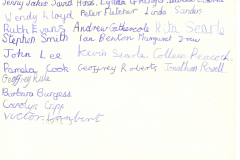 Jenny Jakes David Hood, Lynda
Wendy Lloyd Peter Fletcher Linda Sanders
Ruth Evans Andrew Gathercole Rita Searle
Stephen Smith Ian Benton Margaret Drew
John Lee Kevin Searle Colleen Peacock
Pamela Cook Geoffrey Roberts Jonathan Rowell
Geoffrey Rule
Barbara Burgess
Carolyn Capp
Victor Lambert